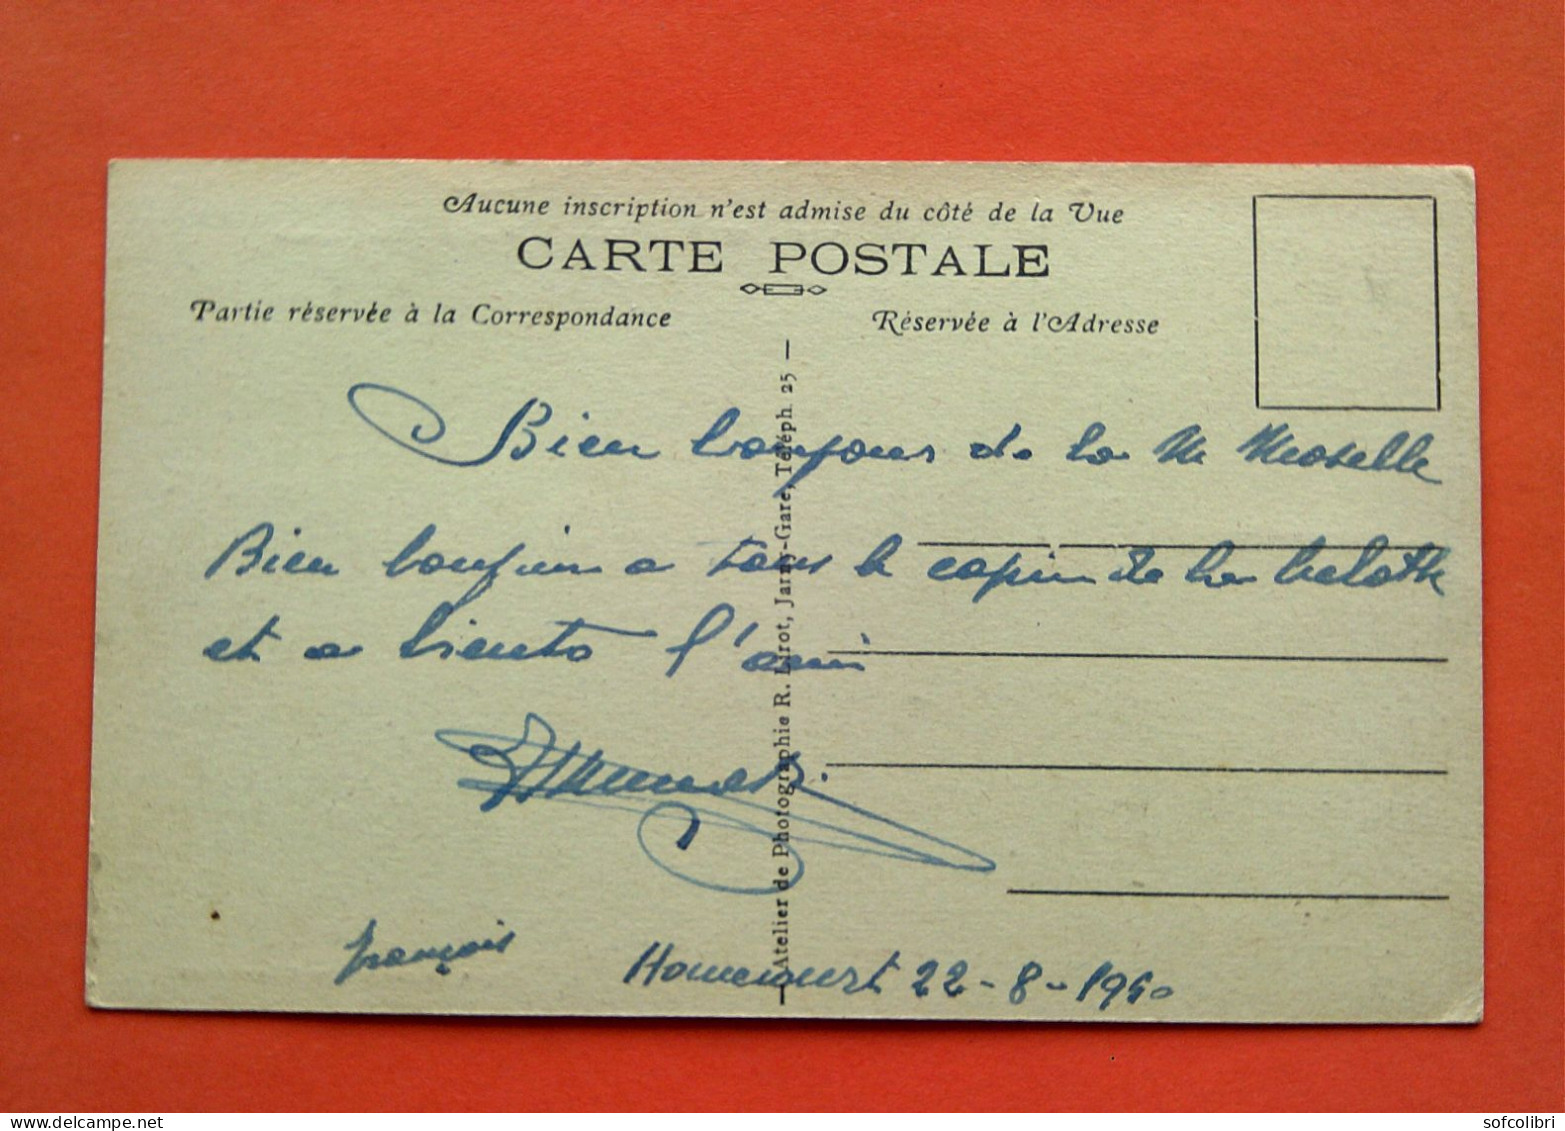 Aucune inscription n'est admise du côté de la Vue
CARTE POSTALE
Partie réservée à la Correspondance
Réservée à l'Adresse
Bien bonjour de la M Moselle
Bien bonjour a tous le copin de la belotte
et a biento l'ami
françois
Homecourt 22-8-1950
Atelier de Photographie R. Lirot, Jarny-Gare, Téléph. 25
www.delcampe.net
sofcolibri